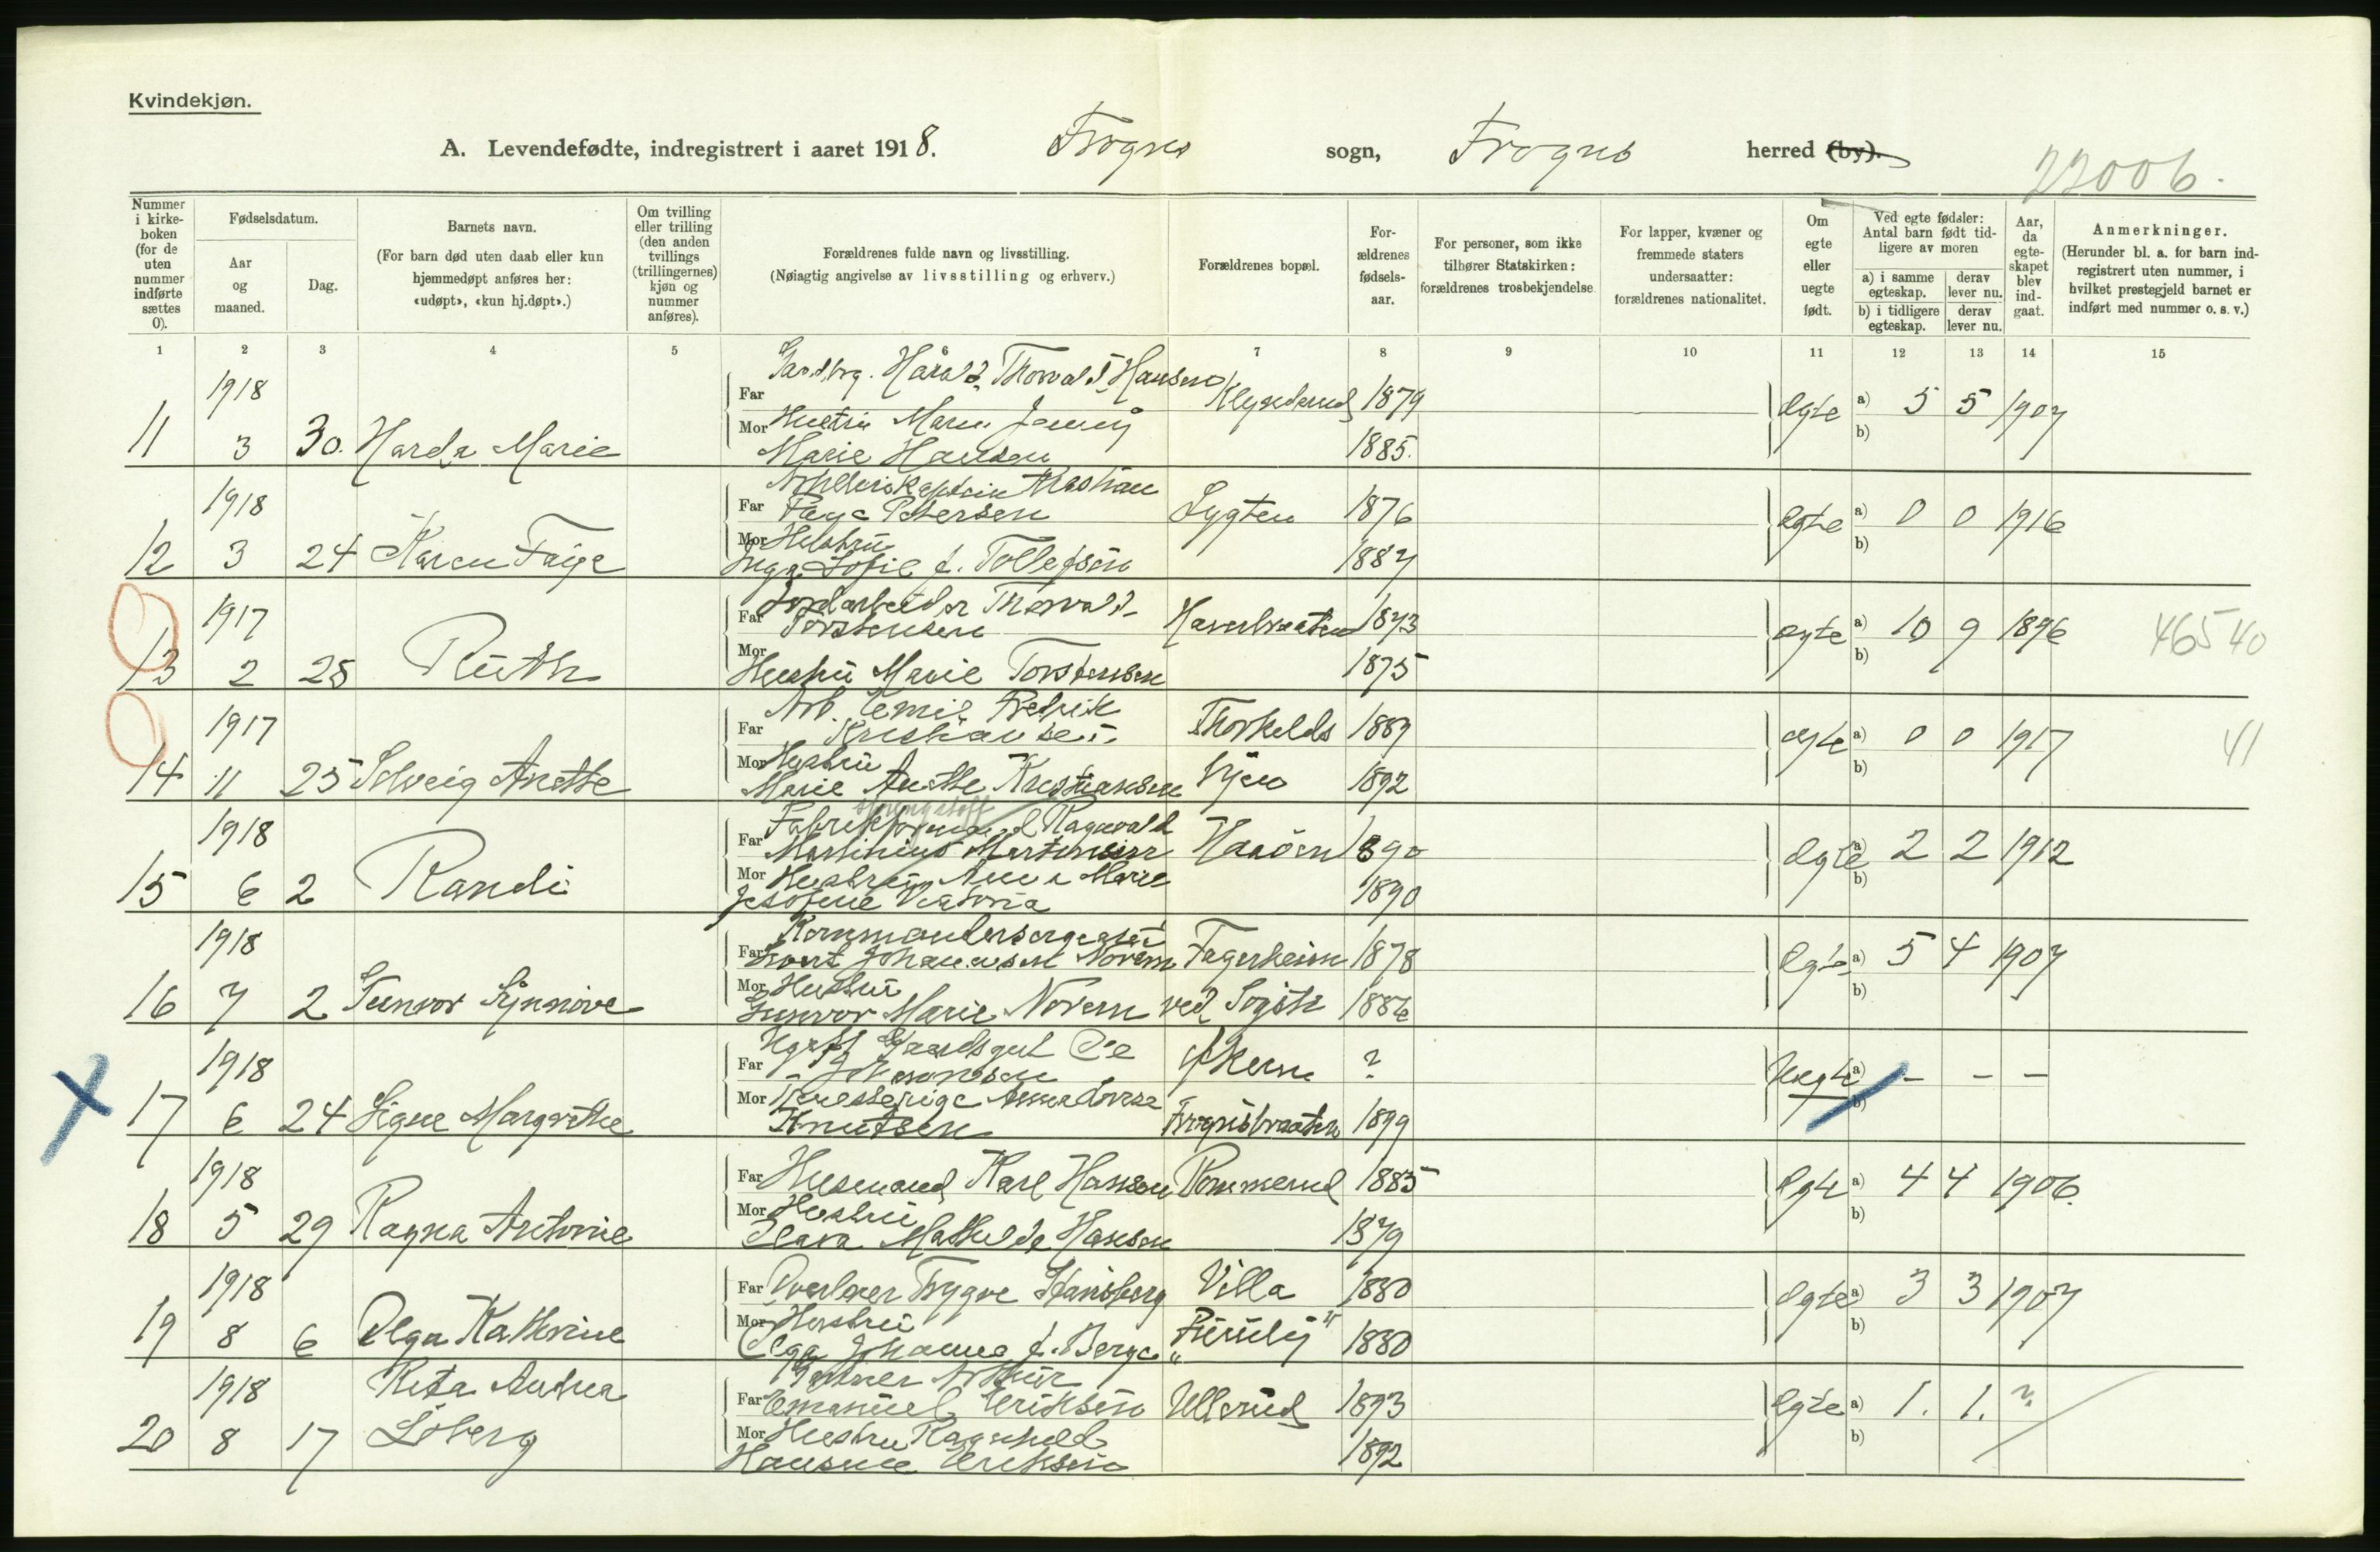 Kvindekjøn.
A. Levendefødte, indregistrert i aaret 1918. Frogner sogn, Frogner herred (by).
22006.
Nummer i kirke-boken (for de uten nummer indførte sættes 0).
Fødselsdatum.
Aar og maaned.
Dag.
Barnets navn.
(For barn død uten daab eller kun hjemmedøpt anføres her: «udøpt», «kun hj.døpt».)
Om tvilling eller trilling (den anden tvillings (trillingernes) kjøn og nummer anføres).
Forældrenes fulde navn og livsstilling.
(Nøiagtig angivelse av livsstilling og erhverv.)
Forældrenes bopæl.
For-ældrenes fødsels-aar.
For personer, som ikke tilhører Statskirken: forældrenes trosbekjendelse.
For lapper, kvæner og fremmede staters undersaatter: forældrenes nationalitet.
Om egte eller uegte født.
Ved egte fødsler: Antal barn født tid-ligere av moren
a) i samme egteskap.
derav lever nu.
b) i tidligere egteskap.
derav lever nu.
Aar, da egte-skapet blev ind-gaat.
Anmerkninger.
(Herunder bl. a. for barn ind-registrert uten nummer, i hvilket prestegjeld barnet er indført med nummer o. s. v.)
1 2 3 4 5 6 7 8 9 10 11 12 13 14 15
Gardbrg. Harald Thorvald Hansen
1918 Far 1879 egte a) 5 5 1907
Mor Hustru Maren Jenny b)
11 3 30. Harda Marie Marie Hansen 1885.
Kristian
1918 Far Faye Petersen Lygten 1876 egte a) 0 0 1916
Mor Hustru b)
12 3 24 Karen Faye Inga Sofie f. Tollefsen 1887
Jordarbeider Thorvald
1917 Far Torstensen Haverbraaten 1873 egte a) 10 9 1896 46540
Mor b)
13 2 28 Ruth Hustru Marie Torstensen 1875
Arb. Emil Fredrik
1917 Far Kristiansen Thorkelds 1889 egte a) 0 0 1917 41
Mor Hustru b)
14 11 25 Solveig Anette Marie Anette Kristiansen 1892
Ragnvald
1918 Far Martinius Martinsen 1890 egte a) 2 2 1912
Mor Hustru Anna Marie b)
15 6 2 Randi Josefine Viktoria 1890
Kommandersergeant
1918 Far Johannesen Norem Fagerheim 1878 egte a) 5 4 1907
Mor Hustru b)
16 7 2 Gunvor Synnøve Gunvor Marie Norem ved 1886
Ugift Gaardsgut Ole
1918 Far Johannesen ? Uegte a) – – –
Mor Anna Lovise b)
17 6 24 Signe Margrethe Knutsen Frognsbraaten 1899
1918 Far Husmand Karl Hansen Pommerud 1885 egte a) 4 4 1906.
Mor Hustru b)
18 5 29 Ragna Antonie Clara Mathilde Hansen 1879
1918 Far Overlærer Trygve Villa 1880 egte a) 3 3 1907
Mor Hustru b)
19 8 6 Olga Kathrine Olga Johanna f. Berge „Furuly" 1880
Rita Andrea Gartner Arthur
1918 Far Emanuel Eriksen Ullerud 1893 egte a) 1. 1. ?
Mor Hustru Ragnhild b)
20 8 17 Löberg Hansine Eriksen 1892